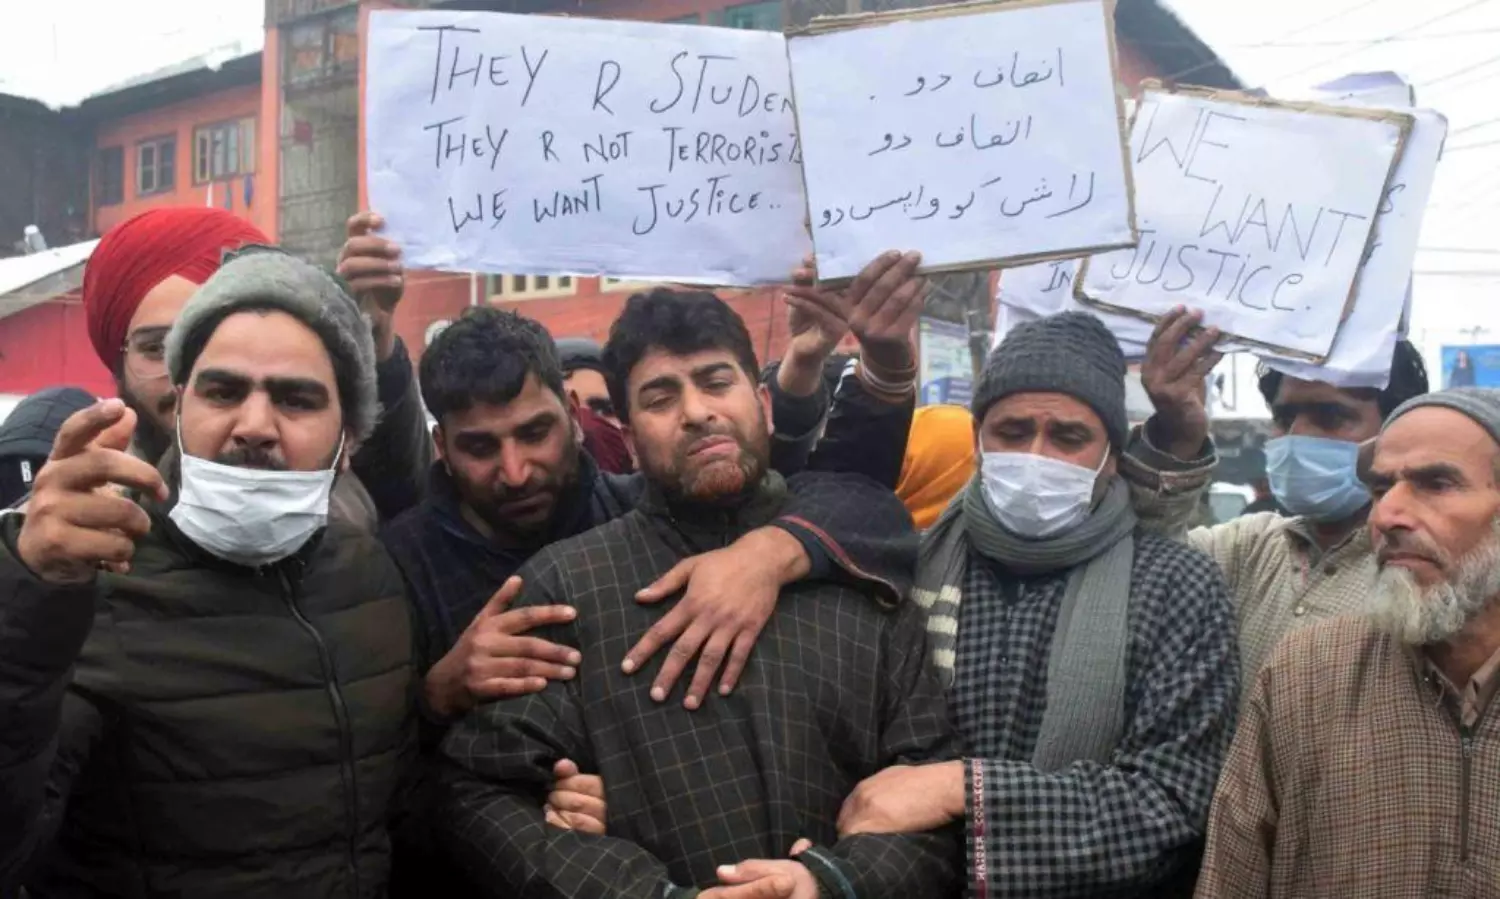 THEY R STUDEN
THEY R NOT TERRORISTS
WE WANT JUSTICE..
انصاف دو .
انصاف دو
لاش کو واپس دو
WE
WANT
JUSTICE.
IN
S.